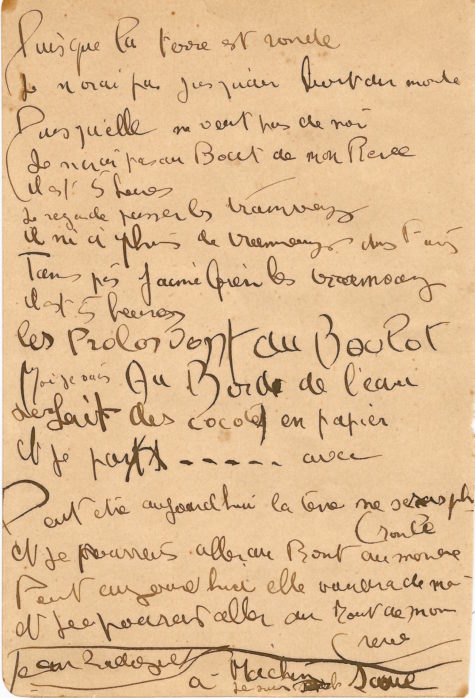 Puisque la terre est ronde
Je n'orai pas jusqu'au bout du monde
Puisqu'elle ne veut pas de moi
Je n'irai pas au Bout de mon Reve
il est 5 heures
Je regarde passer les tramways
il ni a plus de tramways dans Paris
Tans pis j'aime bien les tramways
il est 5 heures
les Prolos Vont au Boulot
Moi je vais Au Bord de l'eau
Je fait des cocotes en papier
et je pars ----- avec
Peut etre aujourdhui la tère ne sera plus
Ronde
et je pourrais aller au Bout du monde
Peut aujourdhui elle voudra de moi
et je pourais aller au Bout de mon
reve
Jean
à Machin
Je suis